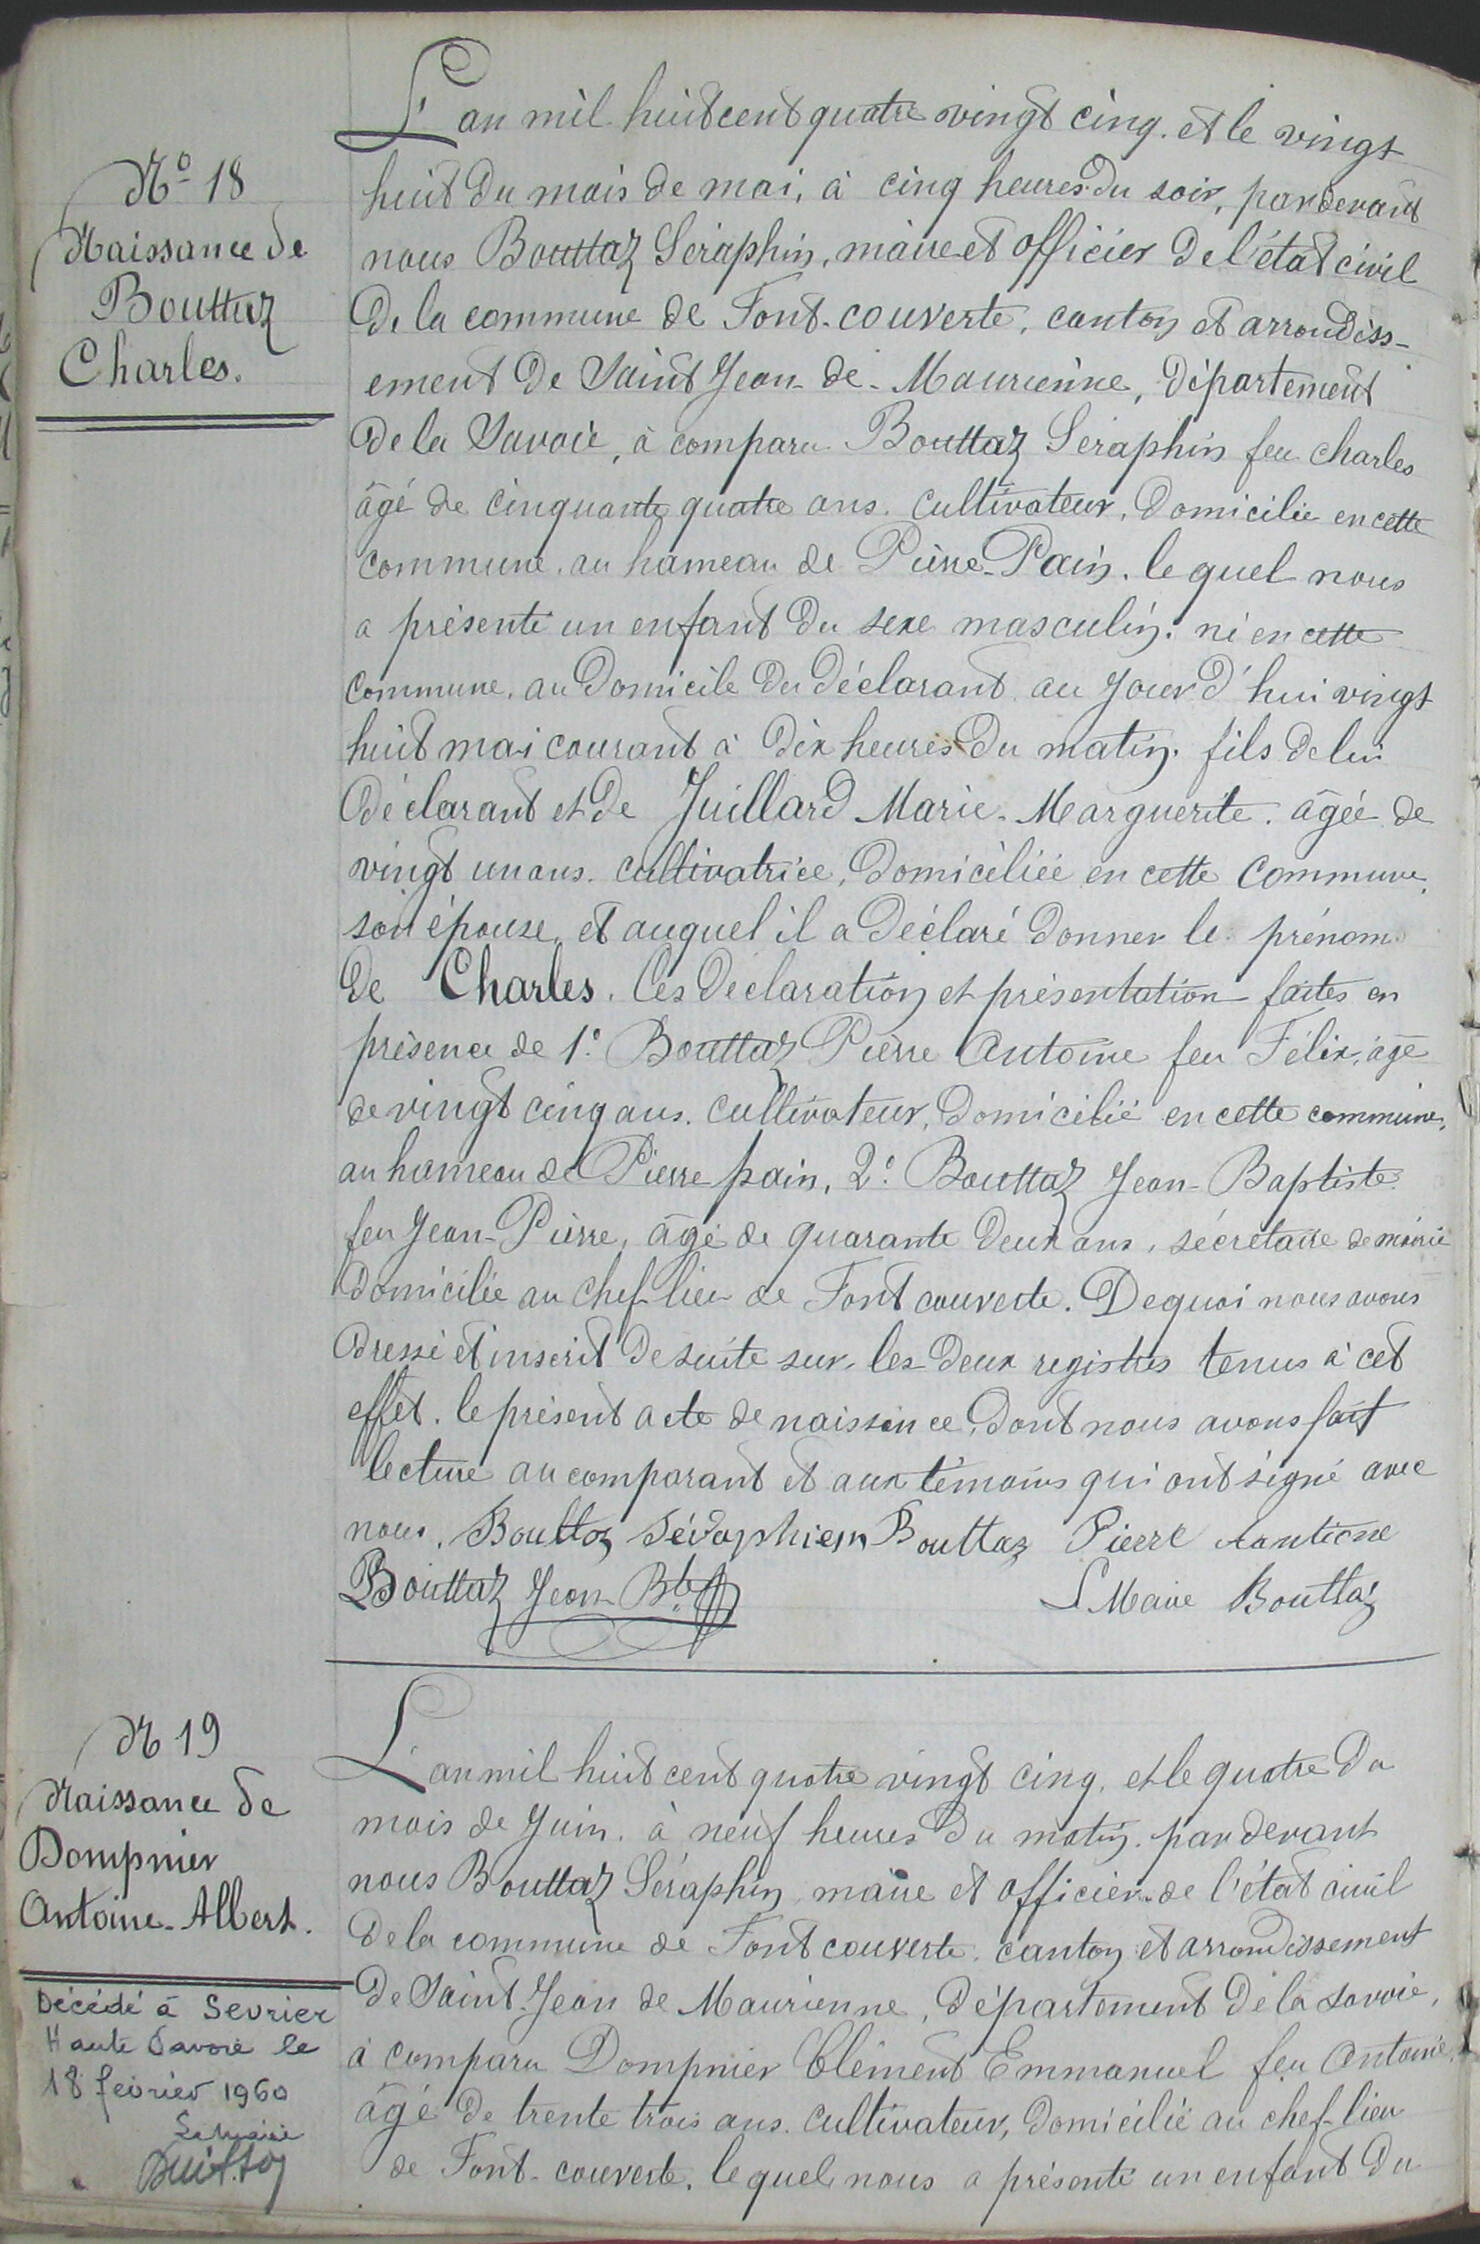 L'an mil huit cent quatre vingt cinq. et le vingt
N° 18
huit du mois de mai, à cinq heures du soir, par devant
Naissance de
nous Bouttaz Séraphin, maire et officier de l'état civil
Bouttaz
de la commune de Font-couverte, canton et arrondiss-
Charles.
ement de Saint Jean-de-Maurienne, département
de la Savoie, à comparu Bouttaz Séraphin feu charles
âgé de cinquante quatre ans. cultivateur, domicilié en cette
commune, au hameau de Pierre-Pain. le quel nous
a présenté un enfant du sexe masculin, né en cette
commune, au domicile du déclarant au jour d'hui vingt
huit mai courant à dix heures du matin, fils de lui
déclarant et de Juillard Marie-Marguerite. âgée de
vingt un ans. cultivatrice, domiciliée en cette commune,
son épouse, et auquel il a déclaré donner le prénom
de Charles. Ces déclaration et présentation faites en
présence de 1° Bouttaz Pierre Antoine feu Félix, âgé
de vingt cinq ans. cultivateur, domicilié en cette commune,
au hameau de Pierre pain, 2° Bouttaz Jean-Baptiste
feu Jean-Pierre, âgé de quarante deux ans, sécrétaire de mairie
domicilié au chef-lieu de Font couverte. De quoi nous avons
dressé et inscrit de suite sur les deux registres tenus à cet
effet. le présent acte de naissance, dont nous avons fait
lecture au comparant et aux témoins qui ont signé avec
nous. Bouttaz Séraphien Bouttaz Pierre Aantione
Bouttaz Jean-Bte
L Maire Bouttaz
N 19
L'an mil huit cent quatre vingt cinq, et le quatre du
Naissance de
mois de Juin. à neuf heures du matin. par devant
Dompnier
nous Bouttaz Séraphin maire et officier de l'état civil
Antoine-Albert.
de la commune de Font couverte. canton et arrondissement
de Saint Jean de Maurienne, département de la Savoie,
Décédé à Sevrier
Haute Savoie le
à comparu Dompnier Clément Emmanuel feu Antoine,
18 février 1960
âgé de trente trois ans. cultivateur, domicilié au chef-lieu
Le Maire
de Font-couverte. le quel nous a présenté un enfant du